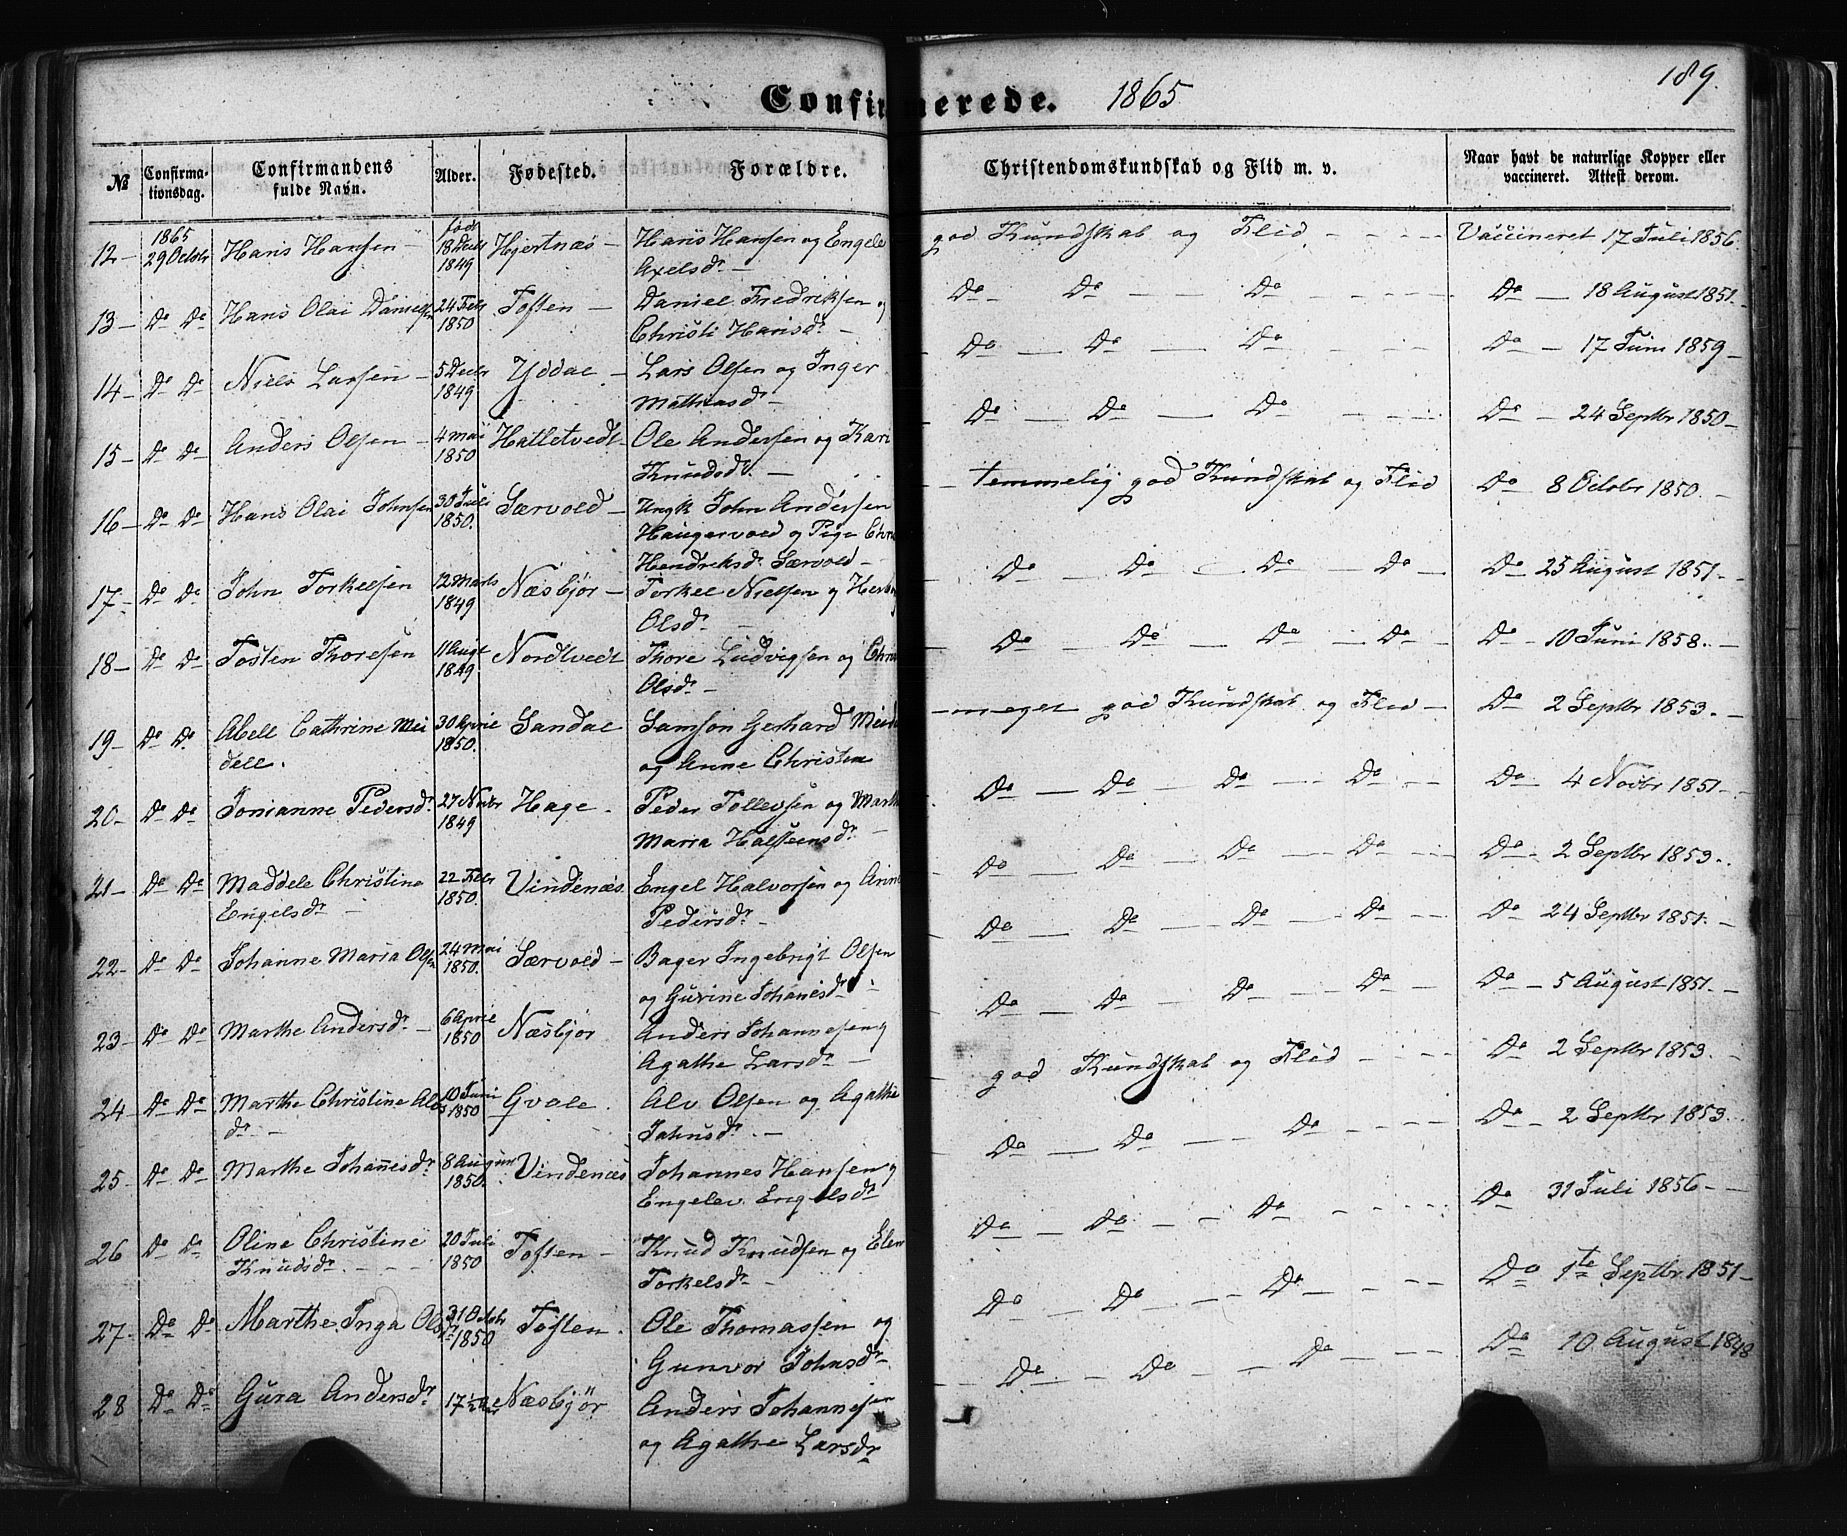 189.
Confirmerede. 1865
№ Confirmationsdag. Confirmandens fulde Navn. Alder. Fødested. Forældre. Christendomskundskab og Flid m. v. Naar havt de naturlige Kopper eller vaccineret. Attest derom.
12 1865 29 Octbr Hans Hansen født 18 Decbr 1849 Hjertnæs Hans Hansen og Engele Axelsdr god Kundskab og Flid Vaccineret 17 Juli 1856.
13 Do Do Hans Olai Danielsen 24 Febr 1850 Toften Daniel Fredriksen og Christi Hansdr Do Do Do Do 18 August 1851
14 Do Do Niels Larsen 5 Decbr 1849 Yddal Lars Olsen og Inger Mathiasdr Do Do Do Do 17 Juni 1859
15 Do Do Anders Olsen 4 Mai 1850 Hatletvedt Ole Andersen og Kari Knudsdr. Do Do Do Do 24 Septbr 1850
16 Do Do Hans Olai Johnsen 30 Juli 1850. Særvold Ungk John Andersen Haugervold og Pige Chri Hendriksdr Særvold temmelig god Kundskab og Flid Do 8 Octobr 1850.
17 Do Do John Torkelsen 12 Marts 1849 Næsbjør Torkel Nielsen og Her Olsdr. Do Do Do Do Do 25 August 1851.
18 Do Do Tosten Thoresen 11 Augt 1849 Nordtvedt Thore Ludvigsen og Chri Olsdr Do Do Do Do Do 10 Juni 1858.
19 Do Do Abell Cathrine Meidell. 30 April 1850. Sandal Samson Gerhard Meid og Anne Christine meget god Kundskab og Flid Do 2 Septbr 1853.
20 Do Do Jonianne Pedersdr 27 Novbr 1849 Hage Peder Tollevsen og Marth Maria Halsteensdr Do Do Do Do Do 4 Novbr 1851
21 Do Do Maddele Christine Engelsdr 22 Febr 1850. Vindenæs Engel Halvorsen og Anne Pedersdr Do Do Do Do Do 2 Septbr 1853.
22 Do Do Johanne Maria Olsen 24 Mai 1850. Særvold Bager Ingebrigt Olsen og Gurine Johanisdr Do Do Do Do Do 24 Septbr 1851.
23 Do Do Marthe Andersdr. 6 April 1850 Næsbjør Anders Johannesen og Agathe Larsdr Do Do Do Do Do 5 August 1851.
24 Do Do Marthe Christine Alvsdr. 10 Juni 1850 Gvale. Alv Olsen og Agathe Johnsdr. god Kundskab og Flid Do 2 Septbr 1853.
25 Do Do Marthe Johanesdr 8 August 1850. Vindenæs Johannes Hansen og Engelev Engelsdr Do Do Do Do 2 Septbr 1853.
26 Do Do Oline Christine Knudsdr. 20 Juli 1850 Toften Knud Knudsen og Elen Torkelsdr Do Do Do Do 31 Juli 1856
27 Do Do Marthe Inga Olsdr 31 Octobr 1850 Toften. Ole Thomassen og Gunvor Johnsdr Do Do Do Do 1te Septbr 1851
28 Do Do Gura Andersdr 17½ Aar Næsbjør Anders Johannesen og Agathe Larsdr Do Do Do Do 10 August 1848